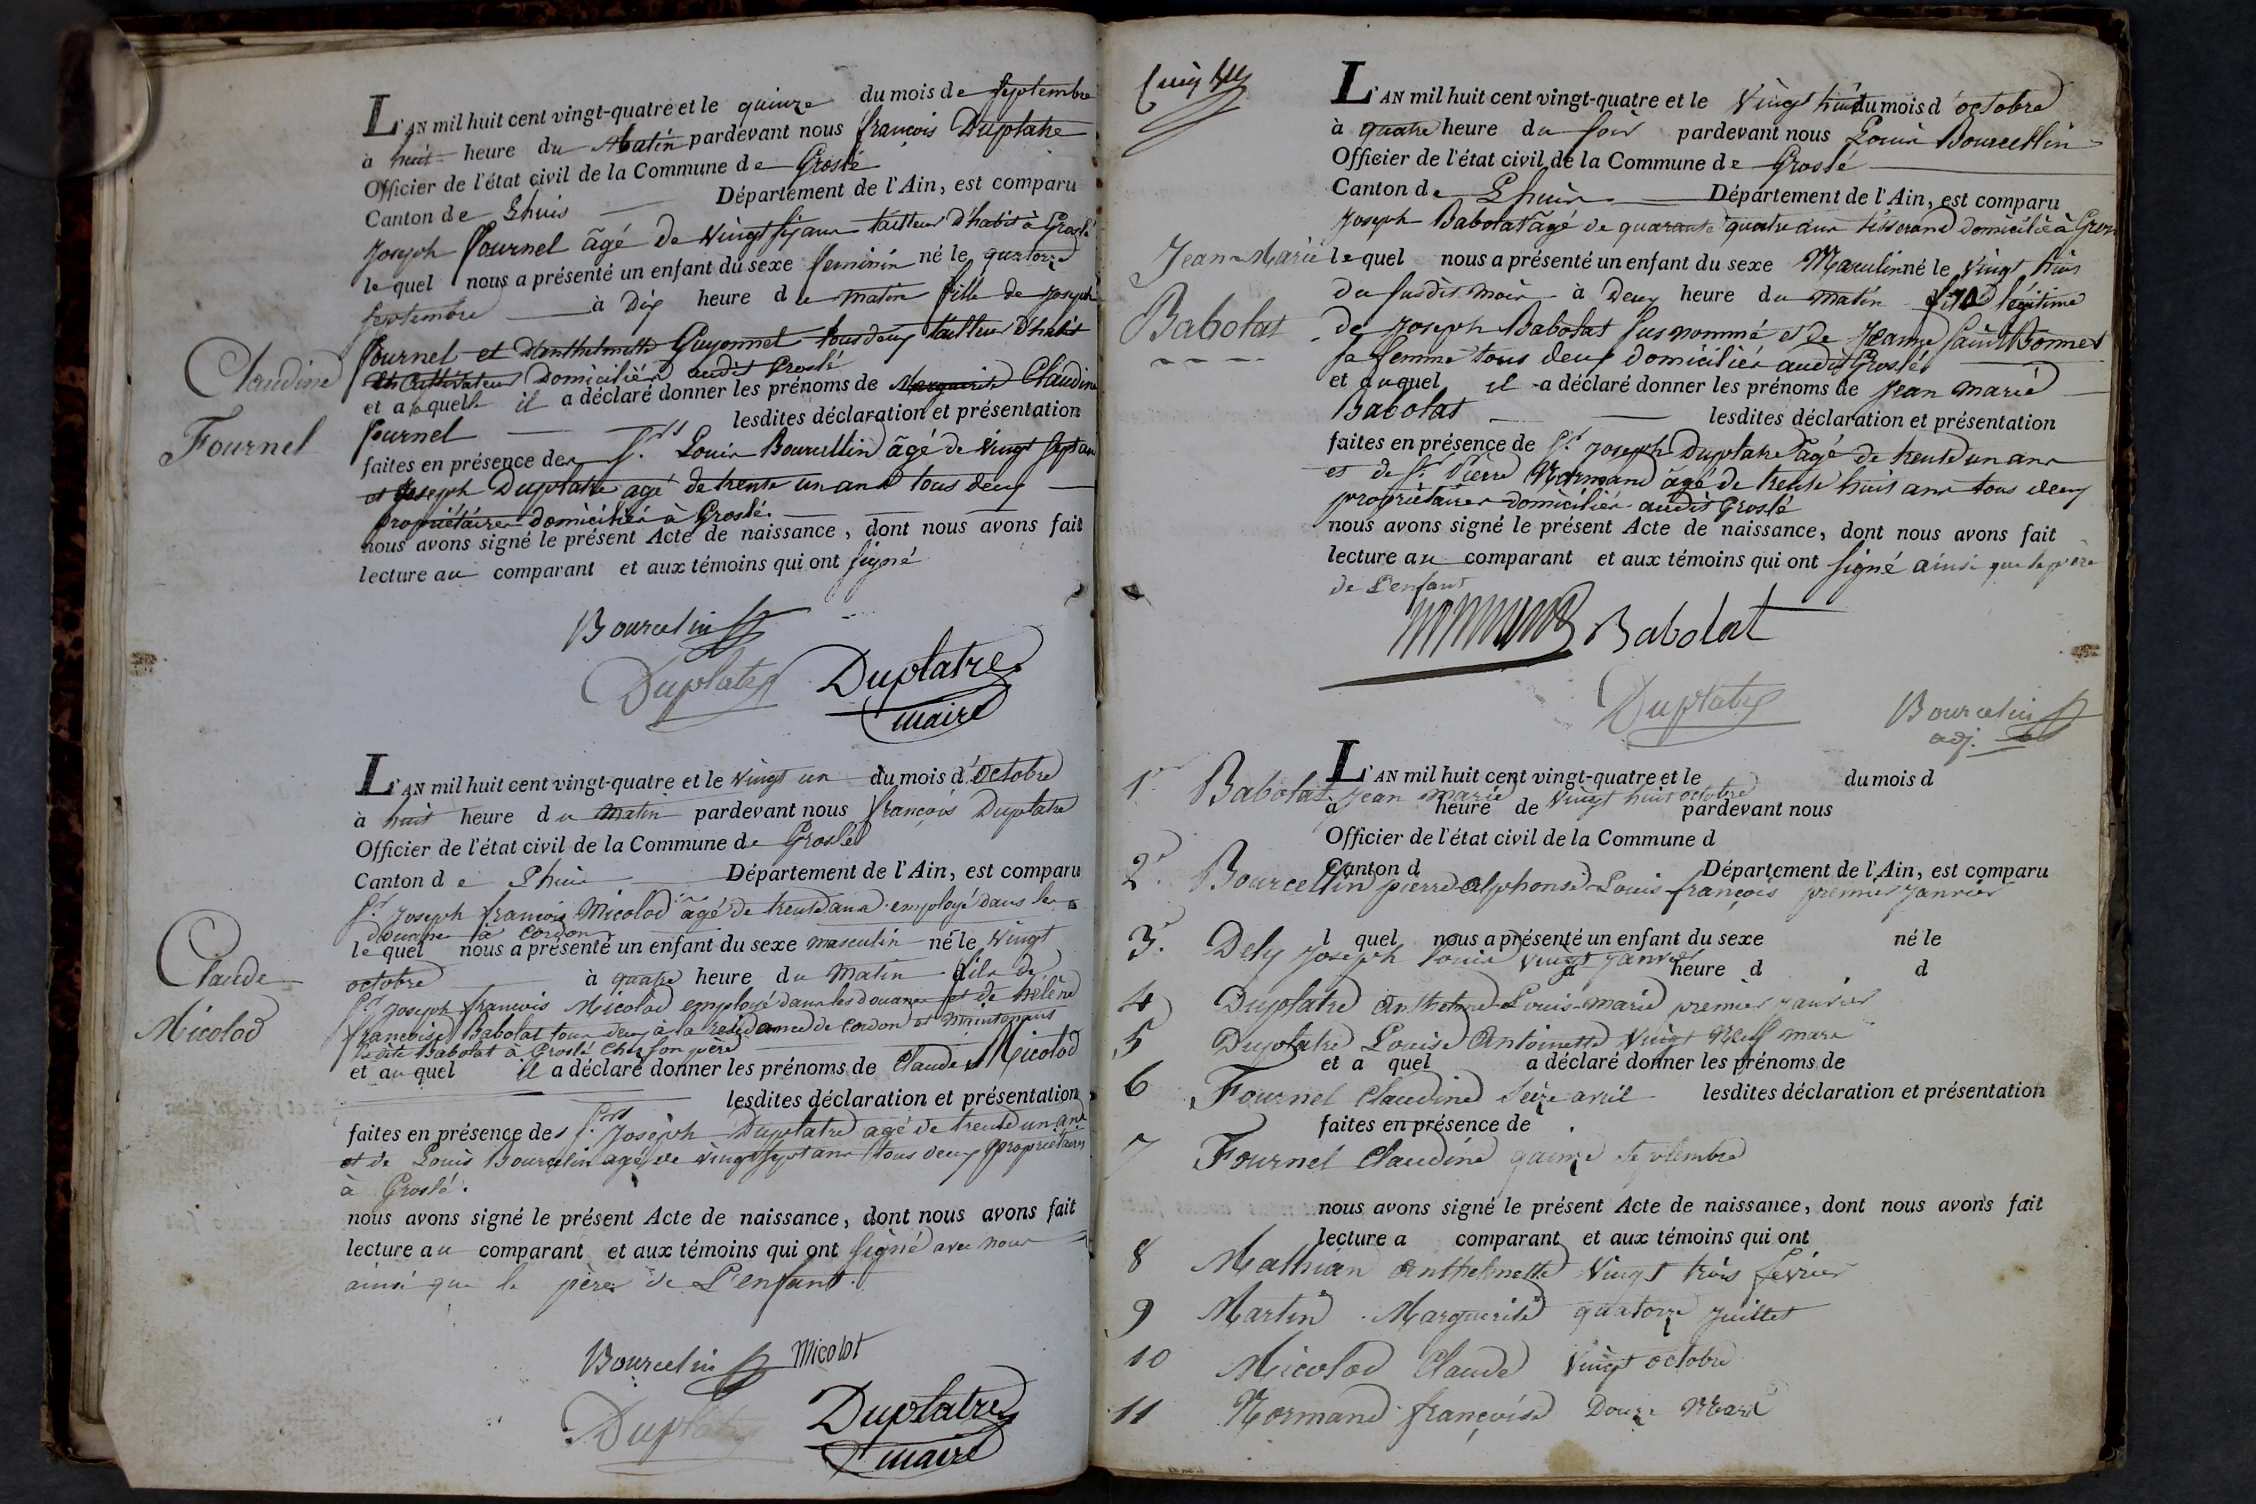 L'AN mil huit cent vingt-quatre et le quinze du mois de septembre
à huit heure du Matin pardevant nous françois Duplatre
Officier de l'état civil de la Commune de Groslé
Canton de Lhuis Département de l'Ain, est comparu
Joseph fournel âgé de vingt six ans tailleur d'habit à Groslé
le quel nous a présenté un enfant du sexe feminin né le quatorze
septembre à Dix heure de matin fille de Joseph
Claudine
Fournel
fournel et d'anthelmette Guyonnet tous deux tailleur d'habit
et Cultivateur Domiciliés audit Groslé
et a laquelle il a déclaré donner les prénoms de Marguerite Claudine
fournel lesdites déclaration et présentation
faites en présence des Srs Louis Bourcellin âgé de vingt sept ans
et Joseph Duplatre agé de trente un ans tous deux
propriétaires domiciliés à Groslé.
nous avons signé le présent Acte de naissance, dont nous avons fait
lecture au comparant et aux témoins qui ont signé
Bourcelin
Duplatre Duplatre
maire
L'AN mil huit cent vingt-quatre et le vingt un du mois d'Octobre
à huit heure du Matin pardevant nous françois Duplatre
Officier de l'état civil de la Commune de Groslé
Canton de Lhuis Département de l'Ain, est comparu
Sr Joseph francois Micolod âgé de trente ans employé dans les
douanes à Cordon
le quel nous a présenté un enfant du sexe masculin né le vingt
octobre à quatre heure du Matin fils de
Claude
Micolod
Sr Joseph francois Micolod employé dans les douanes et de hélène
françoise Babolat tous deux à la résidance de Cordon et Maintenant
Babolat à Groslé Chez son père
et au quel il a déclaré donner les prénoms de Claude Micolod
lesdites déclaration et présentation
faites en présence des Srs Joseph Duplatre agé de trente un ans
et de Louis Bourcelin agé de vingt sept ans tous deux propriétaires
à Groslé.
nous avons signé le présent Acte de naissance, dont nous avons fait
lecture au comparant et aux témoins qui ont signé avec nous
ainsi que le père de L'enfant.
Bourcelin Micolot
Duplatre Duplatre
maire
L'AN mil huit cent vingt-quatre et le vingt huit du mois d'octobre
à quatre heure du soir pardevant nous Louis Bourcellin
Officier de l'état civil de la Commune de Groslé
Canton de Lhuis Département de l'Ain, est comparu
Joseph Babolat âgé de quarante quatre ans tisserand domicilié à
Jean Marie
Babolat
le quel nous a présenté un enfant du sexe Masculin né le vingt huit
du susdit mois à Deux heure du matin fils légitime
de Joseph Babolat susnommé et de Jeanne Saint Bonnet
sa femme tous deux domiciliés audit Groslé
et auquel il a déclaré donner les prénoms de Jean marie
Babolat lesdites déclaration et présentation
faites en présence de Sr Joseph Duplatre agé de trente un ans
et de Sr Pierre Normand âgé de trente huit ans tous deux
propriétaires domiciliés audit Groslé
nous avons signé le présent Acte de naissance, dont nous avons fait
lecture au comparant et aux témoins qui ont signé ainsi que le père
de L'enfant
Babolat
Duplatre Bourcelin
adj.
L'AN mil huit cent vingt-quatre et le du mois d
1. Babolat Jean marie vingt huit octobre
a heure de pardevant nous
Officier de l'état civil de la Commune d
Canton d Département de l'Ain, est comparu
2. Bourcellin pierre alphonse Louis françois premier Janvier
l quel nous a présenté un enfant du sexe né le
3. Dely Joseph Louis vingt Janvier
à heure d d
4 Duplatre anthelme Louis marie premier janvier
5 Duplatre Louise Antoinette vingt neuf mars
et a quel a déclaré donner les prénoms de
6 Fournel Claudine Seize avril lesdites déclaration et présentation
faites en présence de
7 Fournel Claudine quinze septembre
nous avons signé le présent Acte de naissance, dont nous avons fait
lecture a comparant et aux témoins qui ont
8 Mathian anthelmette vingt trois février
9 Martin Marguerite quatorze juillet
10 Micolod Claude vingt octobre
11 Normand françoise Douze Mars